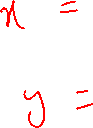 x =
y =